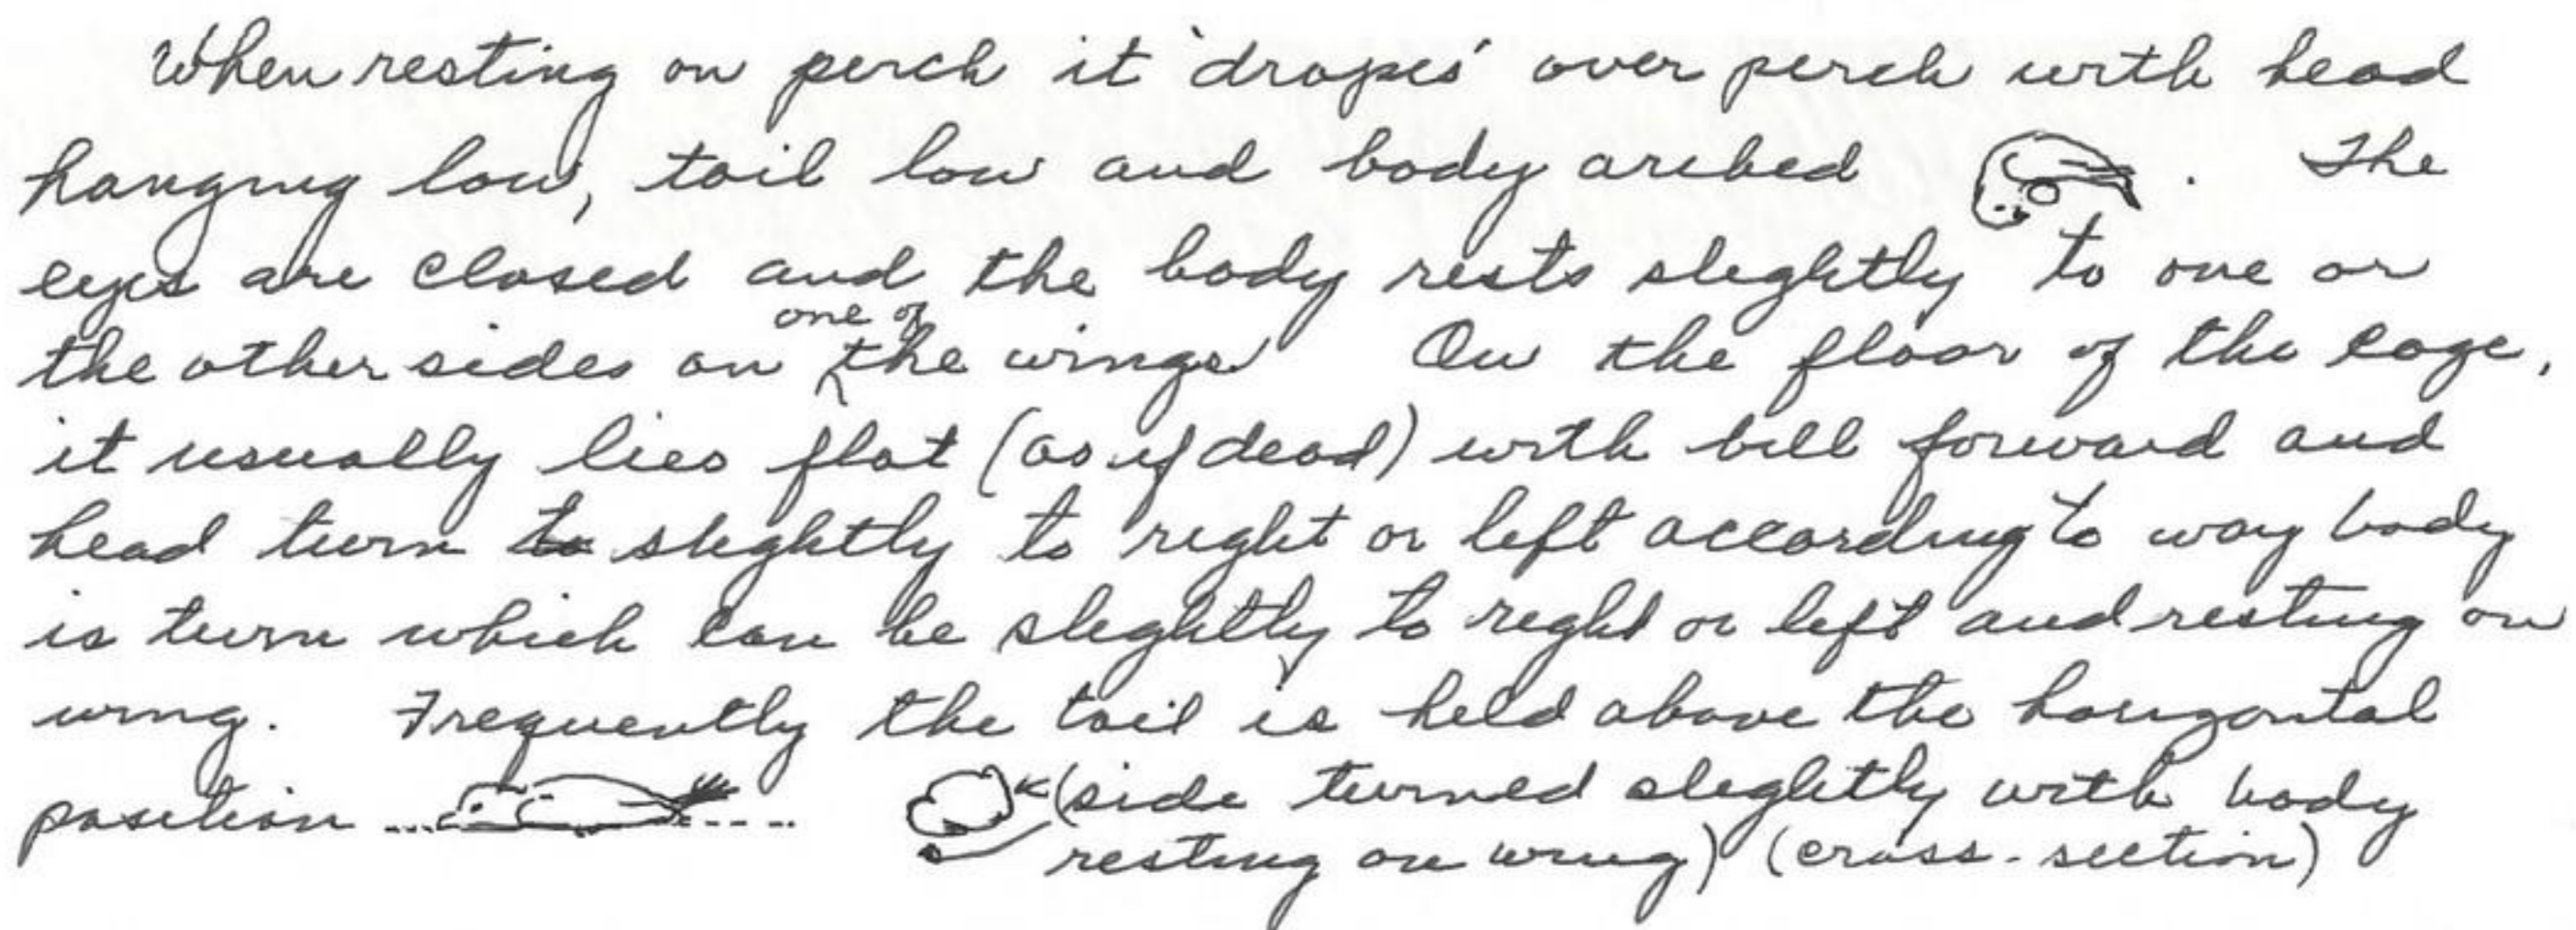 When resting on perch it 'drapes' over perch with head
hanging low, tail low and body arched . The
eyes are closed and the body rests slightly to one or
the other sides on one of the wings. On the floor of the cage,
it usually lies flat (as if dead) with bill forward and
head turn to slightly to right or left according to way body
is turn which can be slightly to right or left and resting on
wing. Frequently the tail is held above the horizontal
position (side turned slightly with body
resting on wing) (cross-section)